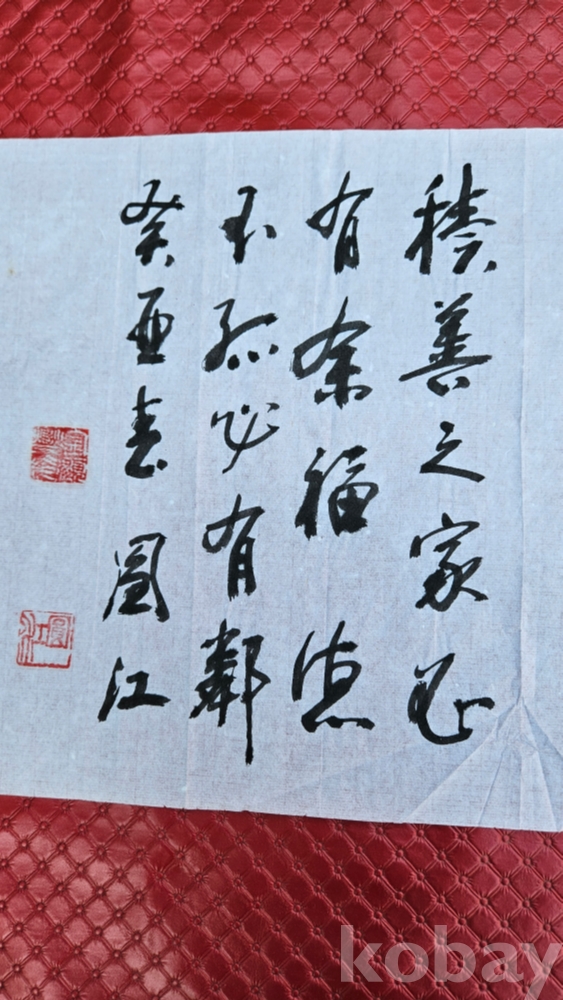 積善之家必
有余福德
不孤必有鄰
癸酉春 圓江
kobay